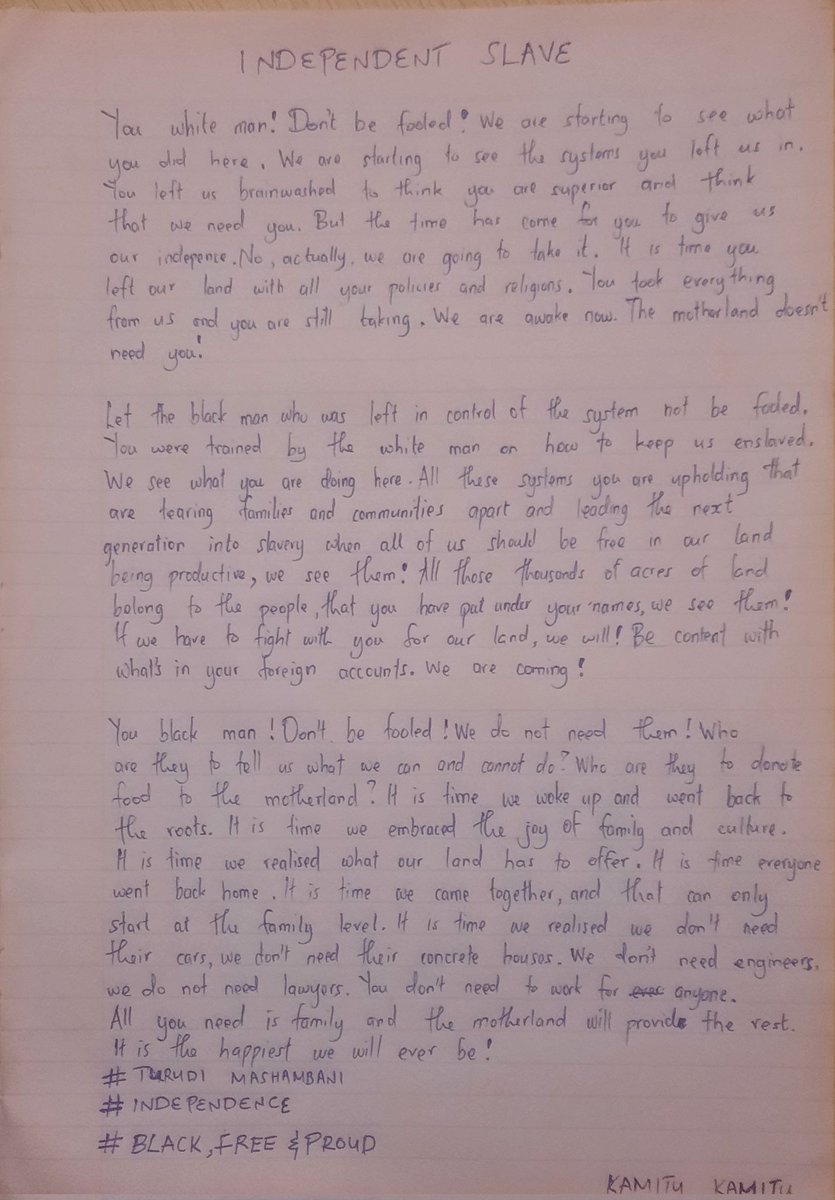 INDEPENDENT SLAVE
You white man! Don't be fooled! We are starting to see what
you did here. We are starting to see the systems you left us in.
You left us brainwashed to think you are superior and think
that we need you. But the time has come for you to give us
our indepence. No, actually, we are going to take it. It is time you
left our land with all your policies and religions. You took everything
from us and you are still taking. We are awake now. The motherland doesn't
need you!
Let the black man who was left in control of the system not be fooled.
You were trained by the white man on how to keep us enslaved.
We see what you are doing here. All these systems you are upholding that
are tearing families and communities apart and leading the next
generation into slavery when all of us should be free in our land
being productive, we see them! All those thousands of acres of land
belong to the people, that you have put under your names, we see them!
If we have to fight with you for our land, we will! Be content with
what's in your foreign accounts. We are coming!
You black man! Don't be fooled! We do not need them! Who
are they to tell us what we can and cannot do? Who are they to donate
food to the motherland? It is time we woke up and went back to
the roots. It is time we embraced the joy of family and culture.
It is time we realised what our land has to offer. It is time everyone
went back home. It is time we came together, and that can only
start at the family level. It is time we realised we don't need
their cars, we don't need their concrete houses. We don't need engineers,
we do not need lawyers. You don't need to work for anyone.
All you need is family and the motherland will provide the rest.
It is the happiest we will ever be!
# TURUDI MASHAMBANI
# INDEPENDENCE
# BLACK, FREE & PROUD
KAMITU KAMITU